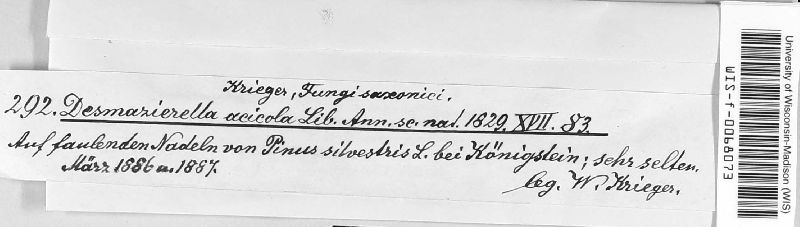 Krieger, Fungi saxonici.
292. Desmazierella acicola Lib. Ann. sc. nat. 1829. XVII. 83.
Auf faulenden Nadeln von Pinus silvestris L. bei Königstein; sehr selten.
März 1886 u. 1887.
leg. W. Krieger.
University of Wisconsin-Madison (WIS)
WIS-f-0068073